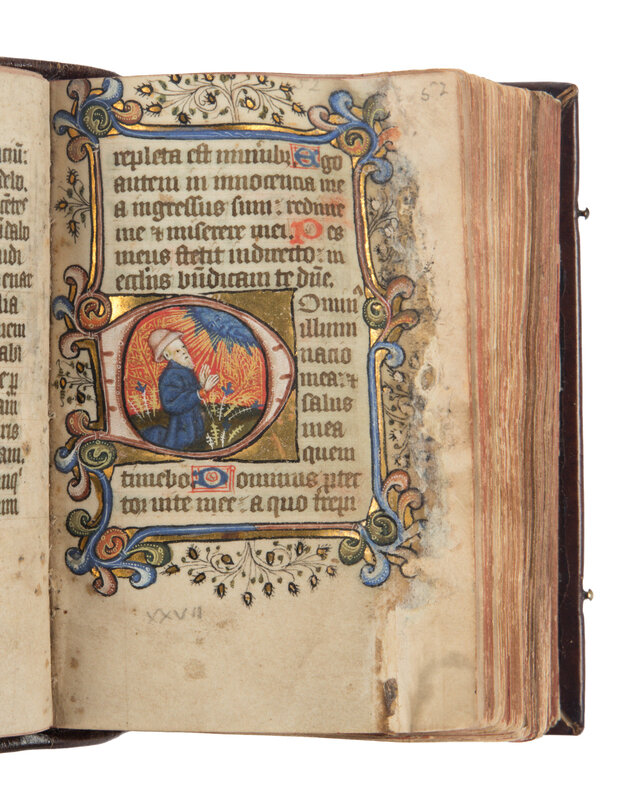 57
repleta est munib; Ego
autem in innocencia me
a ingressus sum: redime
me ⁊ miserere mei. Pes
meus stetit in directo: in
eccliis bn̄dicam te dn̄e.
Domin⁹
illumi
nacio
mea: ⁊
salus
mea
quem
timebo Dominus ꝓtec
tor vite mee: a quo trepi
XXVII